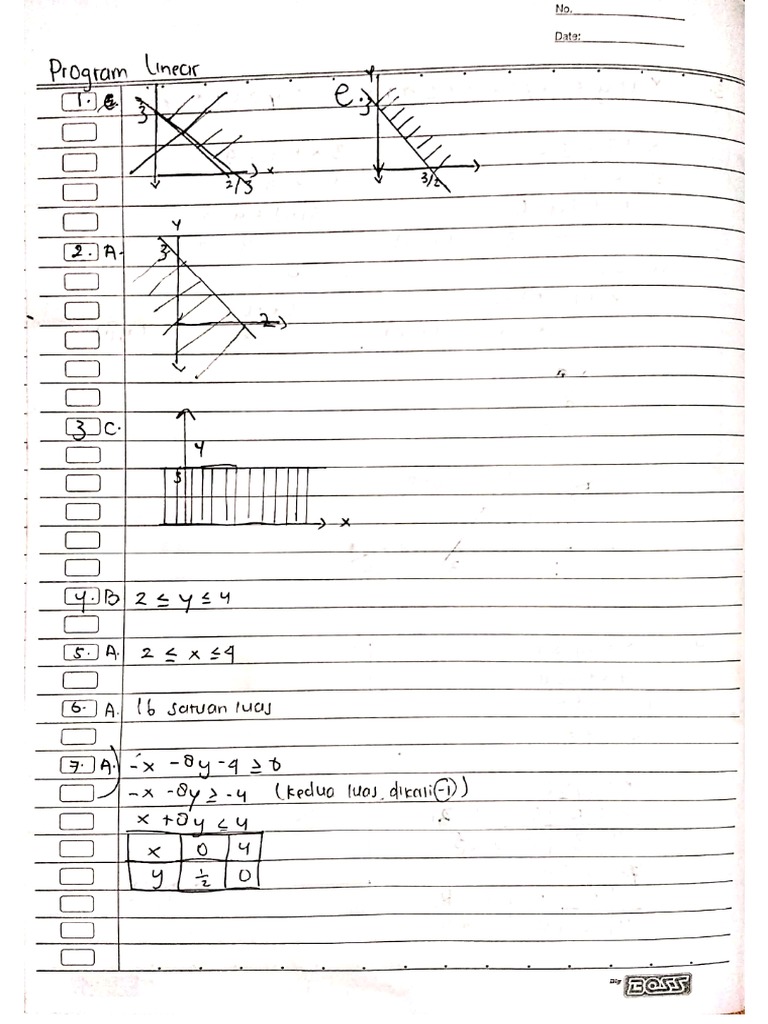 No.
Date:
Program Linear
1. e. 3 x 2/3
e. y 3 3/2
2. A. y 3 2
3 C. y 5 x
4. B 2 ≤ y ≤ 4
5. A. 2 ≤ x ≤ 4
6. A. 16 satuan luas
7. A. -x - 8y - 4 ≥ 0
-x - 8y ≥ -4 (kedua luas dikali (-1))
x + 8y ≤ 4
x 0 4
y 1/2 0
Big BOSS